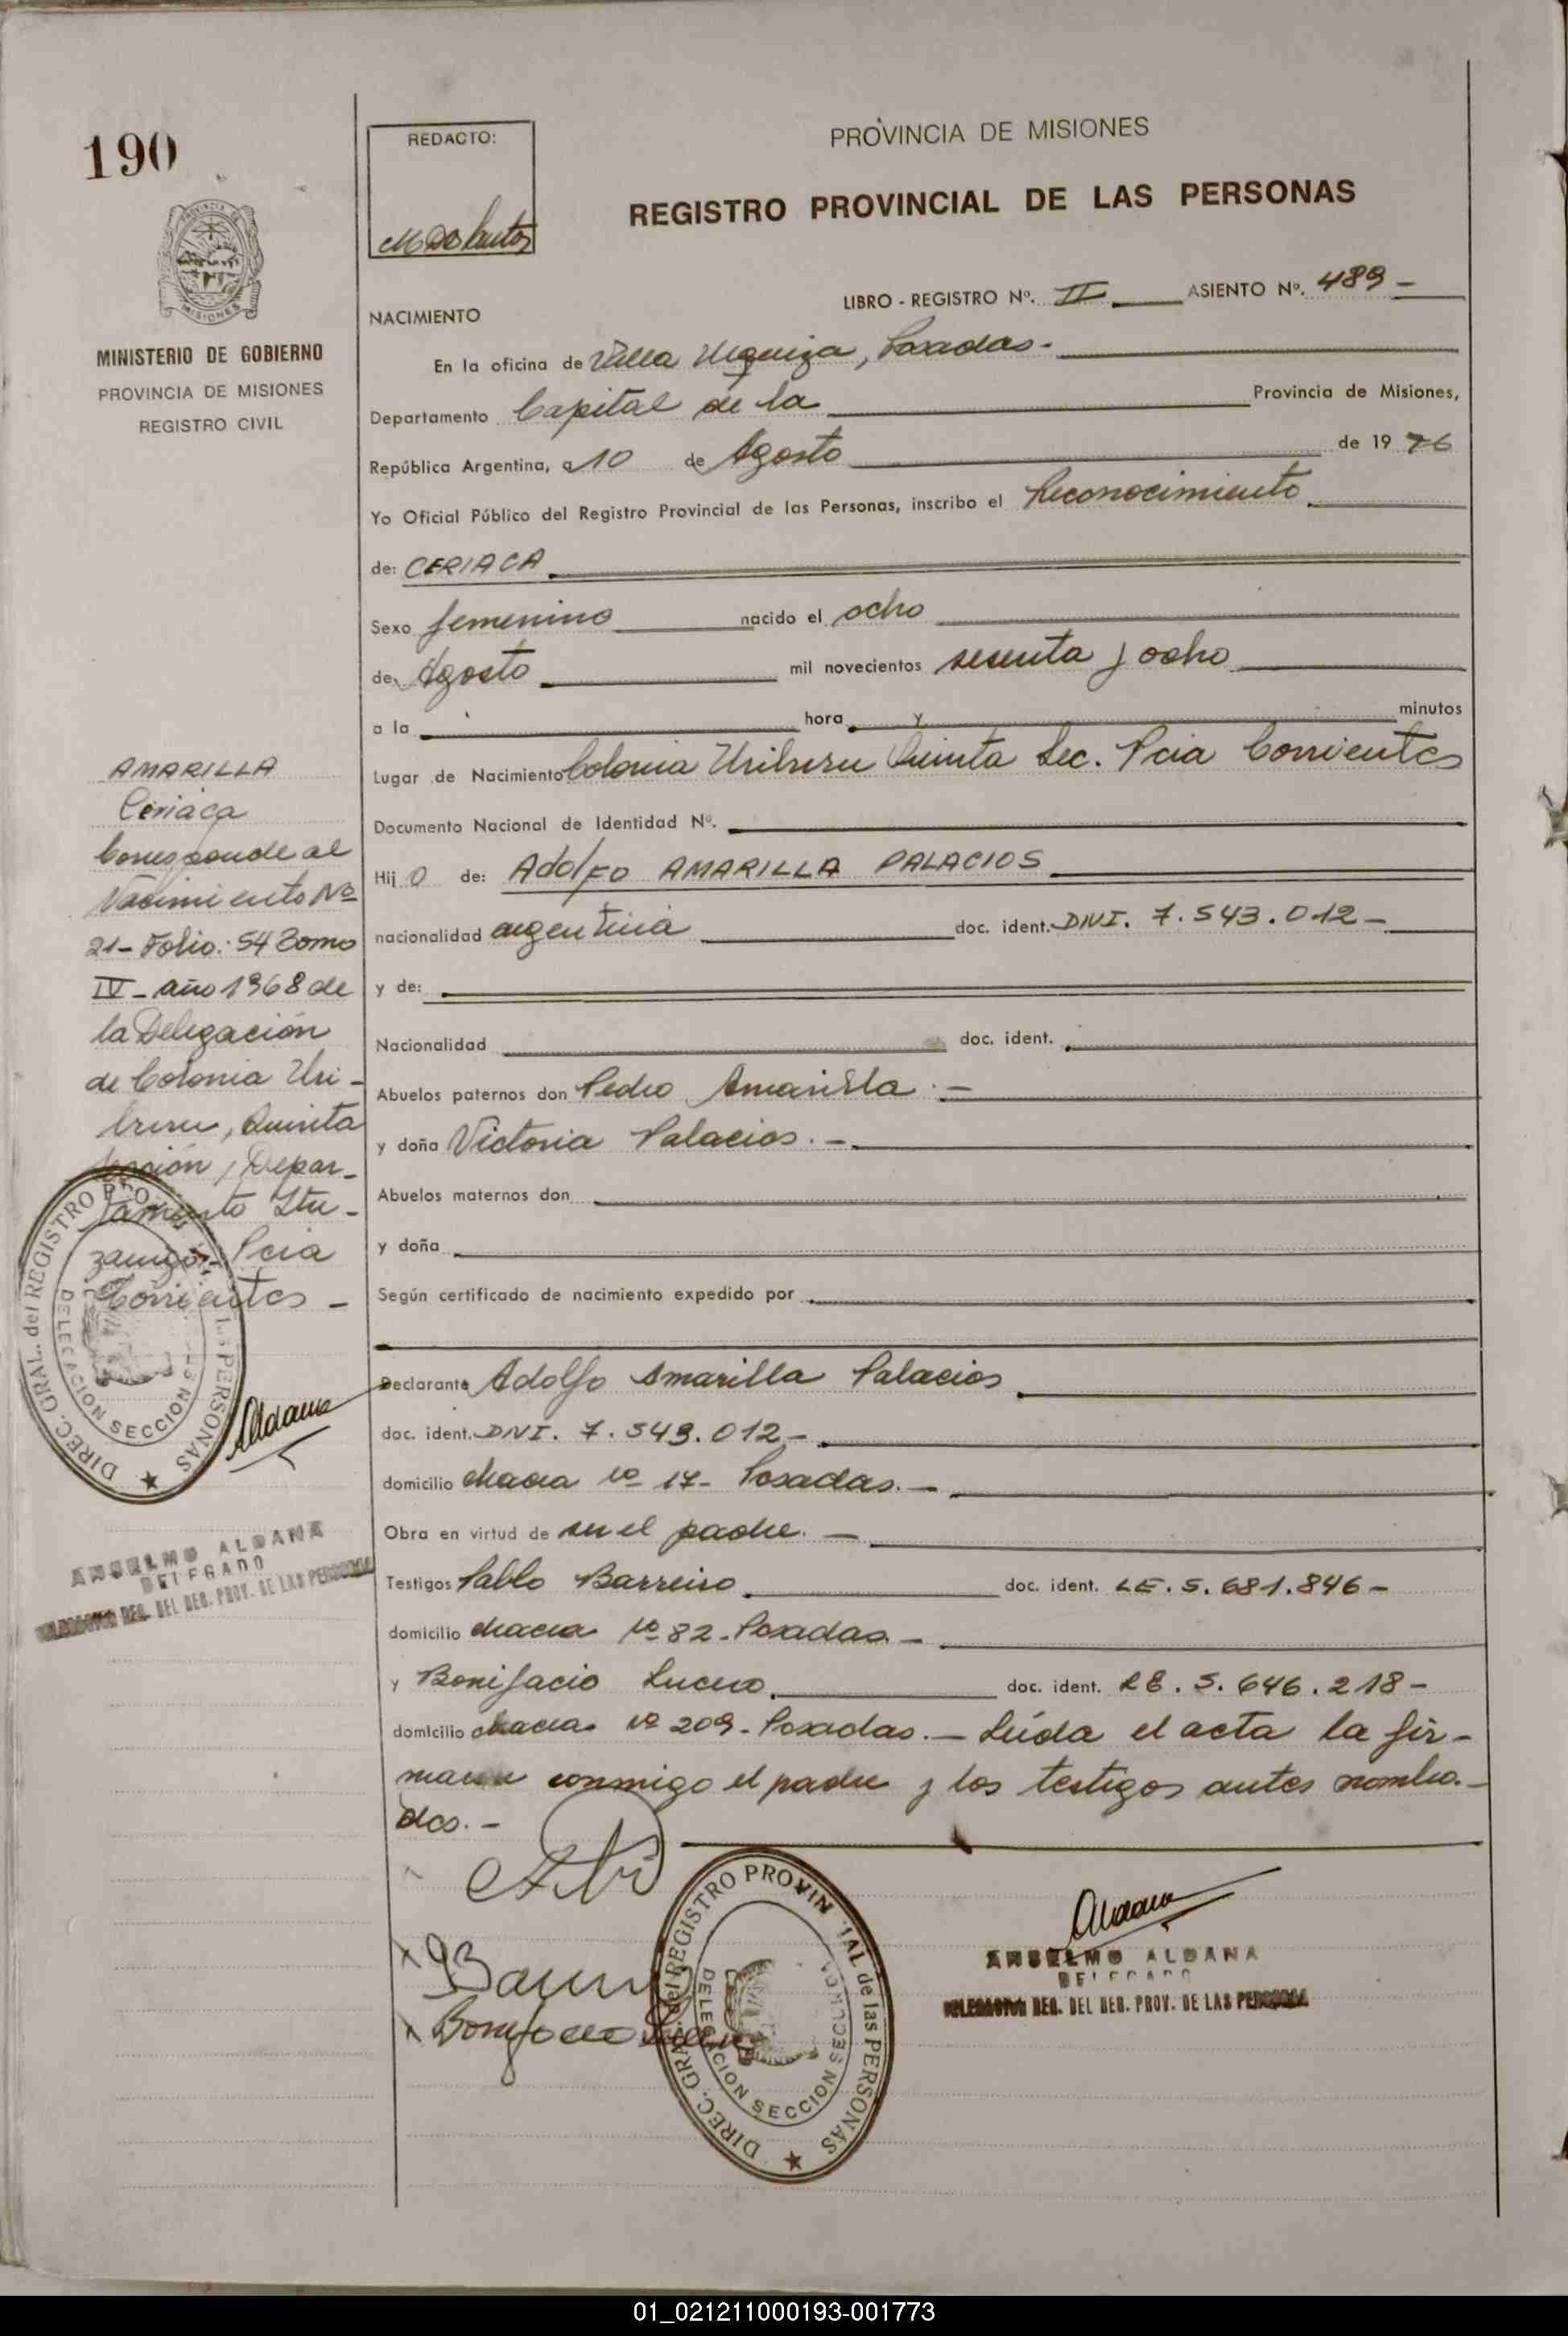 190
REDACTO:
PROVINCIA DE MISIONES
REGISTRO PROVINCIAL DE LAS PERSONAS
PROVINCIA DE MISIONES
MINISTERIO DE GOBIERNO
PROVINCIA DE MISIONES
REGISTRO CIVIL
LIBRO - REGISTRO Nº. II ASIENTO Nº. 489 -
NACIMIENTO
En la oficina de Villa Urquiza, Posadas.
Departamento Capital de la Provincia de Misiones,
República Argentina, a 10 de Agosto de 19 76
Yo Oficial Público del Registro Provincial de las Personas, inscribo el Reconocimiento
de: CERIACA
Sexo femenino nacido el ocho
de Agosto mil novecientos sesenta y ocho
a la hora y minutos
Lugar de Nacimiento Colonia Uriburu Quinta Sec. Pcia Corrientes
Documento Nacional de Identidad Nº.
Hij O de: AdolFO AMARILLA PALACIOS
nacionalidad argentina doc. ident. DNI. 7.543.012-
y de:
Nacionalidad doc. ident.
Abuelos paternos don Pedro Amarilla. -
y doña Victoria Palacios. -
Abuelos maternos don
y doña
Según certificado de nacimiento expedido por
Declarante Adolfo Amarilla Palacios
doc. ident. DNI. 7.543.012-
domicilio chacra Nº 17- Posadas. -
Obra en virtud de ser el padre. -
Testigos Pablo Barreiro doc. ident. LE. 5.681.846-
domicilio chacra Nº 82- Posadas. -
y Bonifacio Lucero doc. ident. LE. 5.646.218-
domicilio chacra Nº 209- Posadas. - Leída el acta la fir-
man conmigo el padre y los testigos antes nombra-
dos. -
AMARILLA
Ceriaca
Corresponde al
Nacimiento Nº
21- Folio: 54 Tomo
IV- año 1968 de
la Delegación
de Colonia Uri-
buru, Quinta
Sección, Depar-
tamento Itu-
zaingó- Pcia
Corrientes -
DIREC. GRAL. del REGISTRO PROVINCIAL de las PERSONAS
DELEGACION SECCIONES
Aldana
ANSELMO ALDANA
DELEGADO
REG. DEL REG. PROV. DE LAS PERSONAS
Bonifacio
DIREC. GRAL. del REGISTRO PROVINCIAL de las PERSONAS
DELEGACION SECCIONES
Aldana
ANSELMO ALDANA
DELEGADO
REG. DEL REG. PROV. DE LAS PERSONAS
01_021211000193-001773